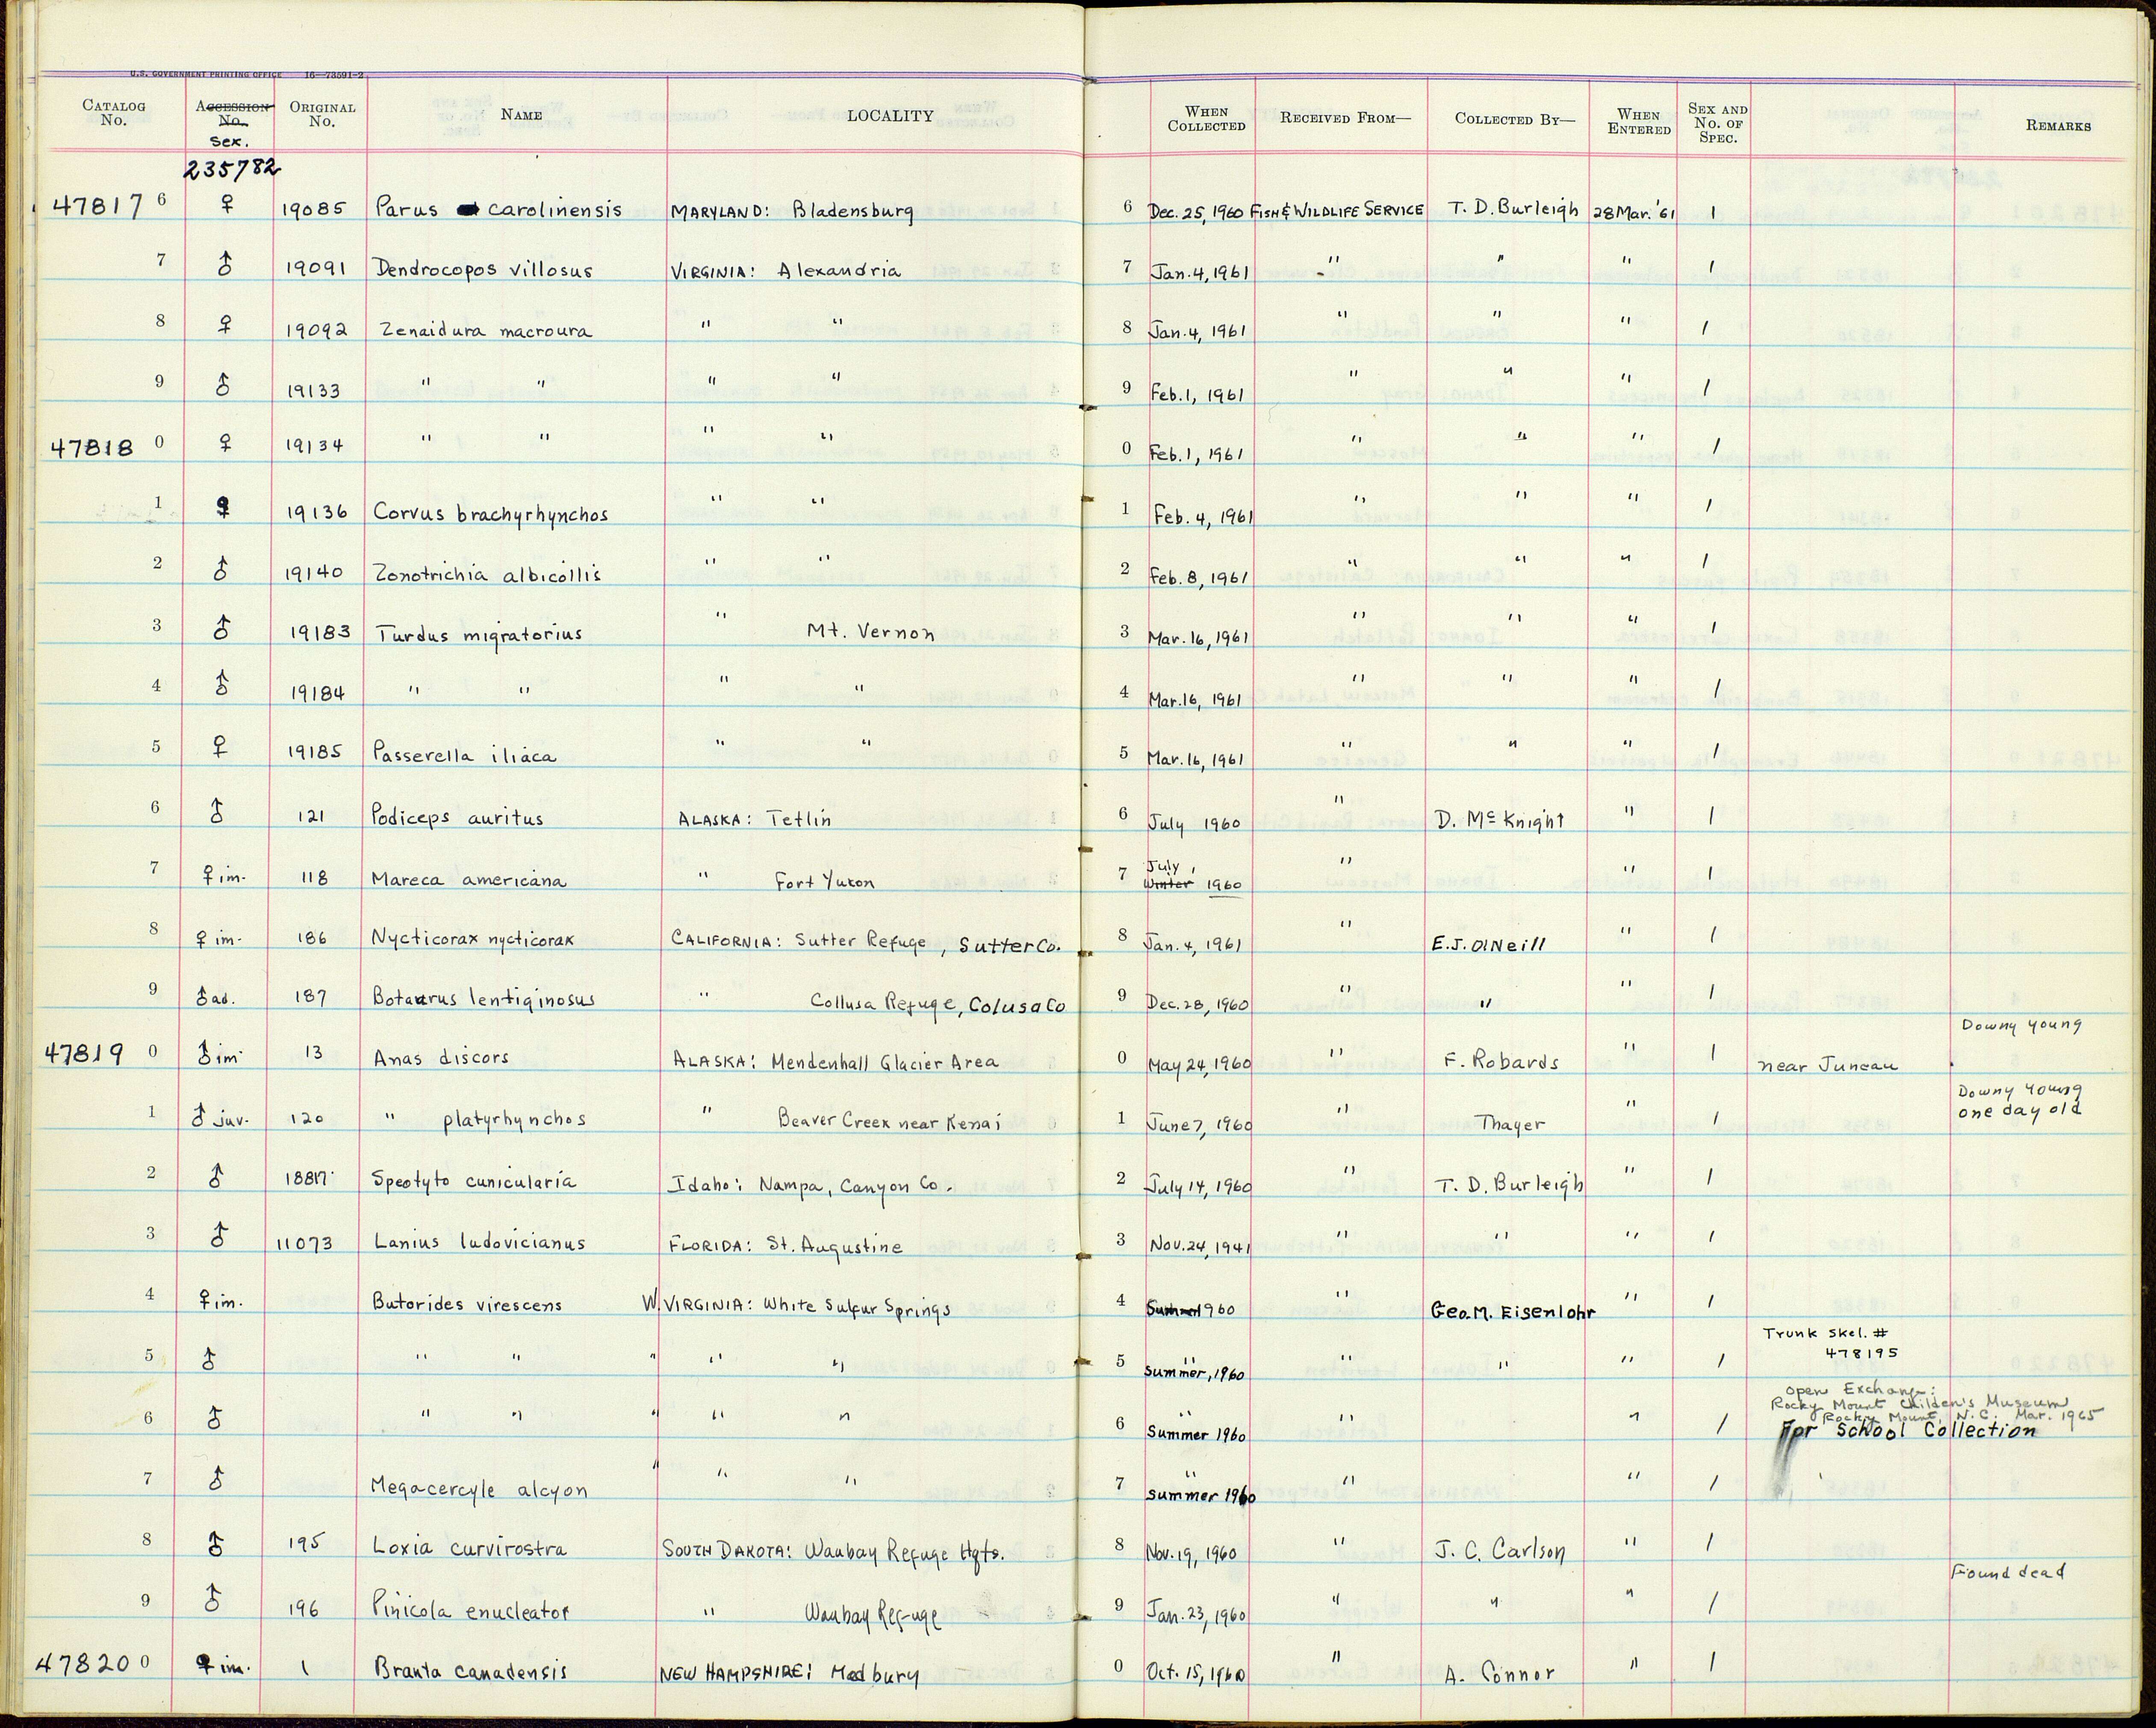 U.S. GOVERNMENT PRINTING OFFICE 16—73591-2
CATALOG No. ACCESSION No. Sex. ORIGINAL No. NAME LOCALITY WHEN COLLECTED RECEIVED FROM— COLLECTED BY— WHEN ENTERED SEX AND No. OF SPEC. REMARKS
235782
47817 6 ♀ 19085 Parus carolinensis MARYLAND: Bladensburg 6 Dec. 25, 1960 FISH & WILDLIFE SERVICE T. D. Burleigh 28 Mar. '61 1
7 ♂ 19091 Dendrocopos villosus VIRGINIA: Alexandria 7 Jan. 4, 1961 " " " 1
8 ♀ 19092 Zenaidura macroura " " 8 Jan. 4, 1961 " " " 1
9 ♂ 19133 " " " " 9 Feb. 1, 1961 " " " 1
47818 0 ♀ 19134 " " " " 0 Feb. 1, 1961 " " " 1
1 ♀ 19136 Corvus brachyrhynchos " " 1 Feb. 4, 1961 " " " 1
2 ♂ 19140 Zonotrichia albicollis " " 2 Feb. 8, 1961 " " " 1
3 ♂ 19183 Turdus migratorius " Mt. Vernon 3 Mar. 16, 1961 " " " 1
4 ♂ 19184 " " " " 4 Mar. 16, 1961 " " " 1
5 ♀ 19185 Passerella iliaca " " 5 Mar. 16, 1961 " " " 1
6 ♂ 121 Podiceps auritus ALASKA: Tetlin 6 July 1960 " D. McKnight " 1
7 ♀ im. 118 Mareca americana " Fort Yukon 7 July, Winter 1960 " " 1
8 ♀ im. 186 Nycticorax nycticorax CALIFORNIA: Sutter Refuge, Sutter Co. 8 Jan. 4, 1961 " E. J. O'Neill " 1
9 ♂ ad. 187 Botaurus lentiginosus " Collusa Refuge, Colusa Co 9 Dec. 28, 1960 " " 1
Downy young
47819 0 ♂ im. 13 Anas discors ALASKA: Mendenhall Glacier Area 0 May 24, 1960 " F. Robards " 1 near Juneau
Downy young
one day old
1 ♂ juv. 120 " platyrhynchos " Beaver Creek near Kenai 1 June 7, 1960 " Thayer " 1
2 ♂ Speotyto cunicularia Idaho: Nampa, Canyon Co. 2 July 14, 1960 " T. D. Burleigh " 1
3 ♂ 11073 Lanius ludovicianus FLORIDA: St. Augustine 3 Nov. 24, 1941 " " " 1
4 ♀ im. Butorides virescens W. VIRGINIA: White Sulfur Springs 4 1960 " Geo. M. Eisenlohr " 1
Trunk Skel. #
478195
5 ♂ " " " " " 5 " summer, 1960 " " " 1
Open Exchange:
Rocky Mount Childen's Museum
Rocky Mount, N.C. Mar. 1965
For School Collection
6 ♂ " " " " " 6 " Summer 1960 " " 1
7 ♂ Megacercyle alcyon " " " 7 " summer 1960 " " 1
8 ♂ 195 Loxia curvirostra SOUTH DAKOTA: Waubay Refuge Hqts. 8 Nov. 19, 1960 " J. C. Carlson " 1
Found dead
9 ♂ 196 Pinicola enucleator " Waubay Refuge 9 Jan. 23, 1960 " " " 1
478200 ♀ im. 1 Branta canadensis NEW HAMPSHIRE: Madbury 0 Oct. 15, 1960 " A. Connor " 1